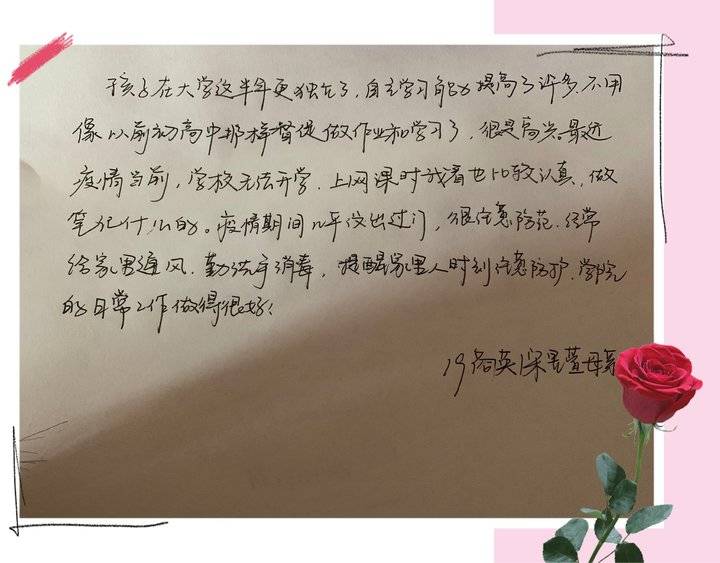 孩子在大学这半年更独立了,自主学习能力提高了许多.不用
像以前初高中那样督促做作业和学习了,很是高兴.最近
疫情当前,学校无法开学.上网课时我看也比较认真,做
笔记什么的。疫情期间几乎没出过门,很注意防范.经常
给家里通风.勤洗手消毒,提醒家里人时刻注意防护.学院
的日常工作做得很好!
19商英 母亲